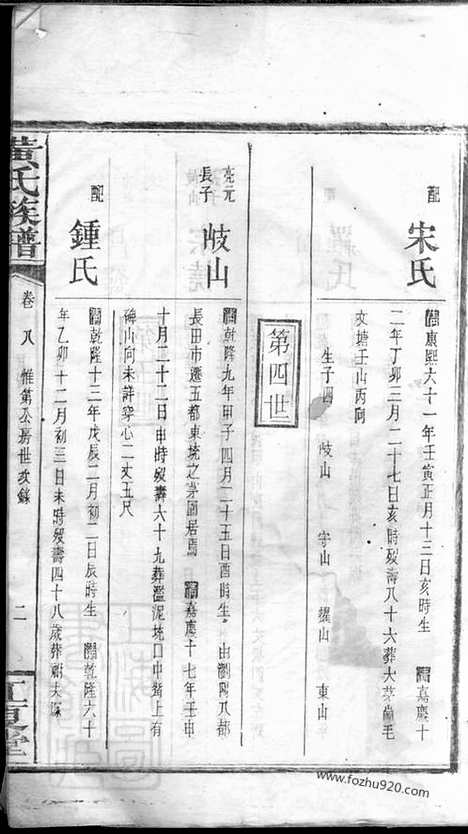 配 宋氏
清康熙六十一年壬寅正月十三日亥時生 清嘉慶十
二年丁卯三月二十七日亥時殁壽八十六葬大茅崙毛
家塘壬山丙向
生子四 岐山 守山 耀山 東山
第四世
亮元長子 岐山
清乾隆九年甲子四月二十五日酉時生 由瀏陽八都
長田市遷五都東坑之茅田居焉 清嘉慶十七年壬申
十月二十二日申時殁壽六十九葬濫泥坑口中嘴上有
碑山向未詳穿心二丈五尺
配 鍾氏
清乾隆十三年戊辰二月初二日辰時生 清乾隆六十
年乙卯十二月初三日未時殁壽四十八歲葬朝夫
黃氏族譜
卷八 惟第公房世次錄
二
江夏堂
www.fozhu920.com